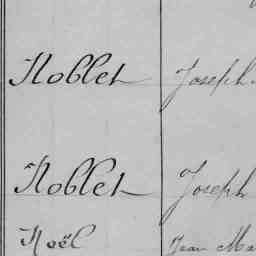 Noblet Joseph
Noblet Joseph
Noël Jean Ma